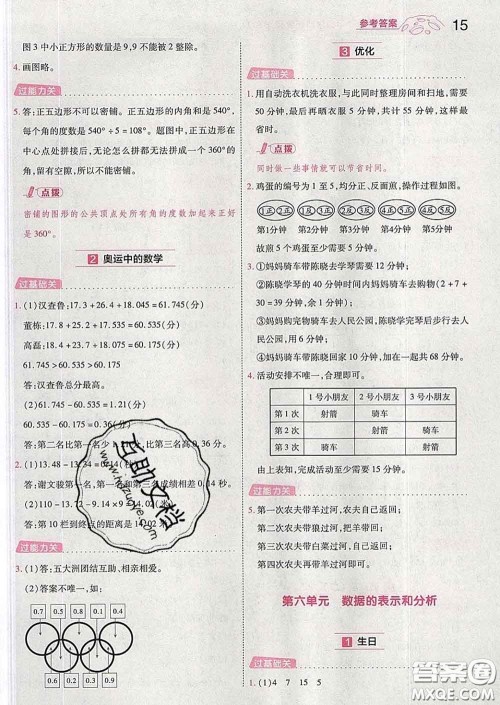 参考答案 15
图3中小正方形的数量是9,9不能被2整除。
4. 画图略。
过能力关
5. 答:正五边形不可以密铺。正五边形的内角和是540°,
每个角的度数是540°÷5=108°。题图中,正五边形在
中心点处拼接后,无论怎么拼都无法拼成一个360°的
角,留有空隙,所以不能密铺。
点拨
密铺的图形的公共顶点处所有角的度数加起来正好
是360°。
2 奥运中的数学
过基础关
1. (1)汉查鲁:17.3+26.4+18.045=61.745(分)
董栋:17.8+24.6+18.135=60.535(分)
高磊:
61.745>60.535>60.175
答:汉查鲁总分最高。
(2)61.745-60.535=1.21(分)
60.535-60.175=0.36(分)
答:第二名比第一名少1.21分,比第三名高0.36分。
(1)13.48-13.34=0.14(秒)
答:谢文骏第一名和第二名成绩相差0.14秒。
(2)110-13.72-9.14×9=14.02(米)
答:第10栏到终点的距离是14.02米。
过能力关
3. (1)答:五大洲团结互助、相亲相爱。
(2)答案不唯一,如:
0.7 0.5 0.8 0.4 0.1
0.6 0.2 0.3 0.9
3 优化
过基础关
1. 用自动洗衣机洗衣服,与此同时整理房间和扫地,需要
50分钟,最后再晒衣服共用55分钟,这样安排,最
省时。
点拨
同时做一些事情就可以节省时间。
2. 鸡蛋的编号为1至5,均分正、反面煎,操作过程如图。
①正②正 ①反③正 ②反③反 ④正⑤正 ④反⑤反
第1分钟 第2分钟 第3分钟 第4分钟 第5分钟
故煎5个鸡蛋至少需要5分钟。
3. ①妈妈骑车带陈晓去学琴需要12分钟;
②陈晓学琴30分钟的时间内妈妈骑车去购物(2+7+
30=39,余1分钟);
③妈妈购完物骑车去人民公园,陈晓学完琴步行去人民
公园;
④妈妈骑车带陈晓回家10分钟,加起来一共68分钟。
4. 活动安排不唯一,合理即可。
1号小朋友 2号小朋友 3号小朋友
第1次 射箭 骑车
第2次 射箭 骑车
第3次 骑车 射箭
由上表知,完成活动至少需要15分钟。
过能力关
5. 第一次农夫带羊过河,农夫自己返回;
第二次农夫带狼过河,把羊带回;
第三次农夫带白菜过河,自己返回;
第四次农夫带羊过河。
第六单元 数据的表示和分析
1 生日
过基础关
1. (1)4 7 15 5
互助文档
www.hzwdwyie.com
答案圈
MXQE.COM